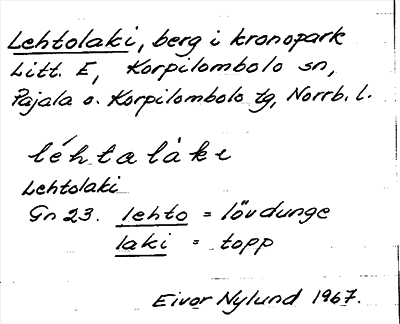 Lehtolaki, berg i kronopark
Litt. E, Korpilombolo sn,
Pajala o. Korpilombolo tg, Norrb. l.
léhtaláki
Lehtolaki
Gn 23. lehto = lövdunge
laki = topp
Eivor Nylund 1967.